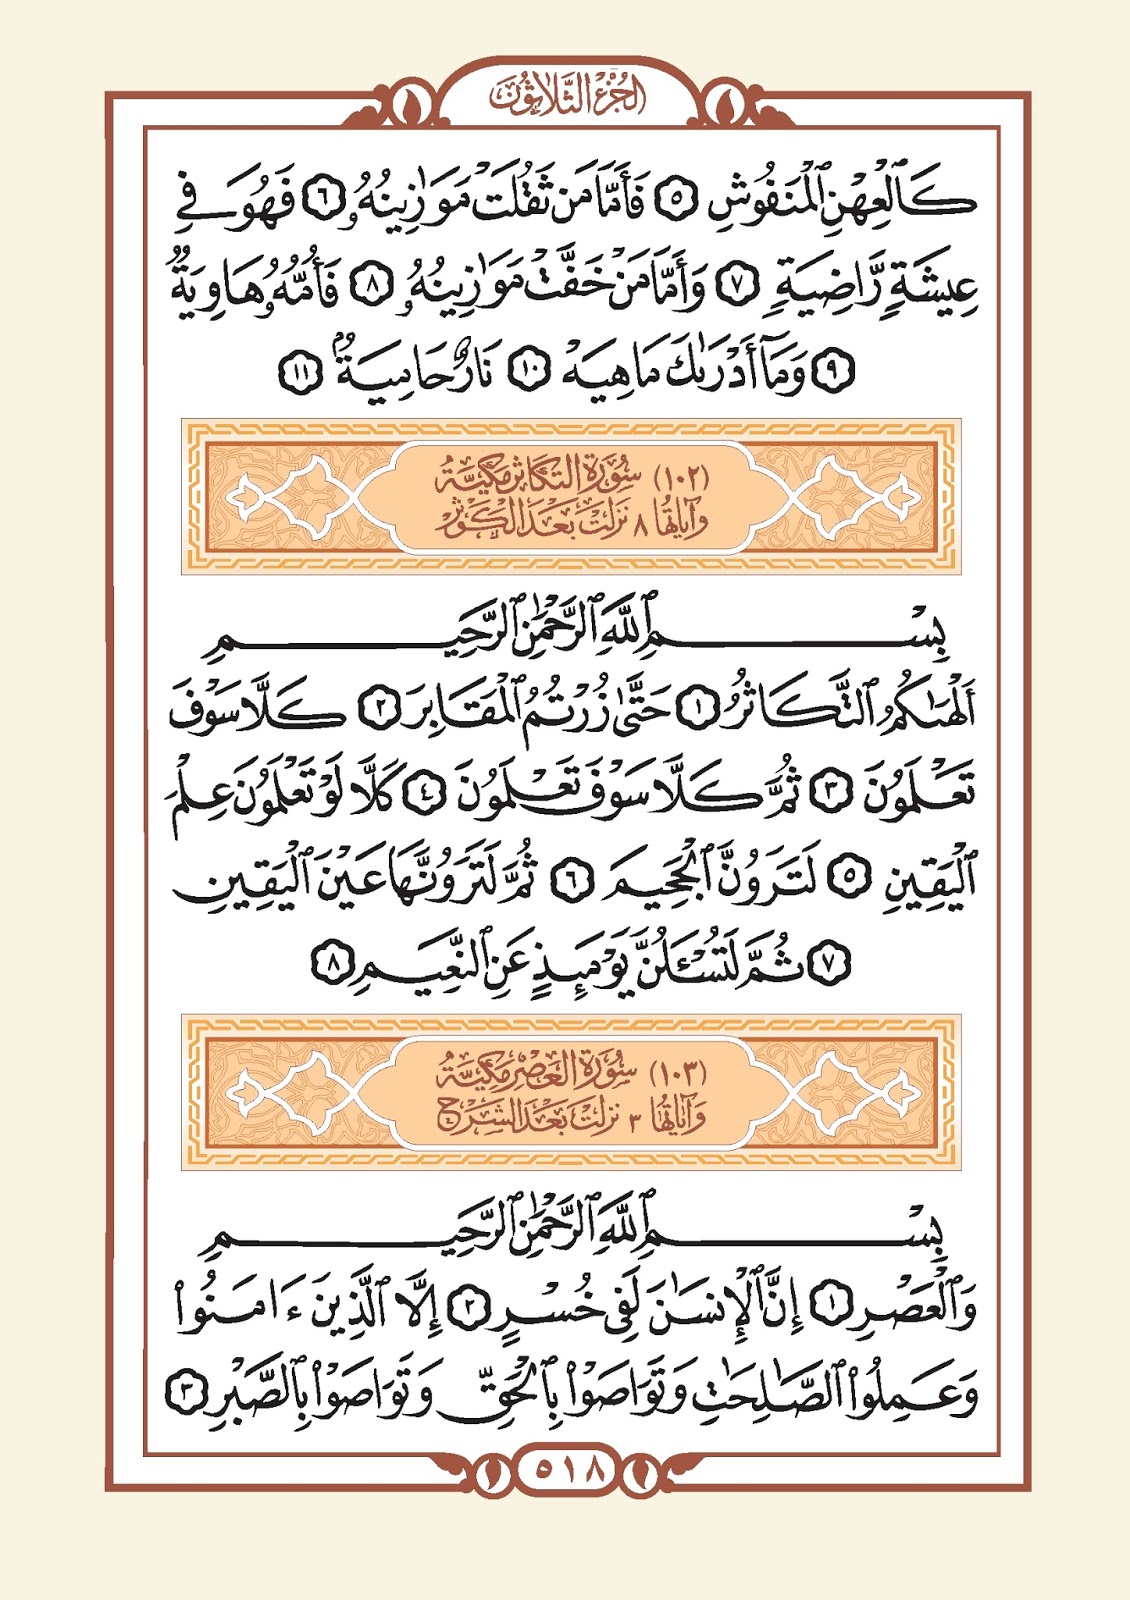 الجُزْءُ الثَّلَاثُونَ
كَٱلْعِهْنِ ٱلْمَنفُوشِ ٥ فَأَمَّا مَن ثَقُلَتْ مَوَٰزِينُهُۥ ٦ فَهُوَ فِي
عِيشَةٖ رَّاضِيَةٖ ٧ وَأَمَّا مَنْ خَفَّتْ مَوَٰزِينُهُۥ ٨ فَأُمُّهُۥ هَاوِيَةٞ
٩ وَمَآ أَدْرَىٰكَ مَا هِيَهْ ١٠ نَارٌ حَامِيَةُۢ ١١
(١٠٢) سُورَةُ التَّكَاثُرِ مَكِّيَّةٌ
وَآيَاتُهَا ٨ نَزَلَتْ بَعْدَ الْكَوْثَرِ
بِسْمِ ٱللَّهِ ٱلرَّحْمَٰنِ ٱلرَّحِيمِ
أَلْهَىٰكُمُ ٱلتَّكَاثُرُ ١ حَتَّىٰ زُرْتُمُ ٱلْمَقَابِرَ ٢ كَلَّا سَوْفَ
تَعْلَمُونَ ٣ ثُمَّ كَلَّا سَوْفَ تَعْلَمُونَ ٤ كَلَّا لَوْ تَعْلَمُونَ عِلْمَ
ٱلْيَقِينِ ٥ لَتَرَوُنَّ ٱلْجَحِيمَ ٦ ثُمَّ لَتَرَوُنَّهَا عَيْنَ ٱلْيَقِينِ
٧ ثُمَّ لَتُسْـَٔلُنَّ يَوْمَئِذٍ عَنِ ٱلنَّعِيمِ ٨
(١٠٣) سُورَةُ الْعَصْرِ مَكِّيَّةٌ
وَآيَاتُهَا ٣ نَزَلَتْ بَعْدَ الشَّرْحِ
بِسْمِ ٱللَّهِ ٱلرَّحْمَٰنِ ٱلرَّحِيمِ
وَٱلْعَصْرِ ١ إِنَّ ٱلْإِنسَٰنَ لَفِي خُسْرٍ ٢ إِلَّا ٱلَّذِينَ ءَامَنُواْ
وَعَمِلُواْ ٱلصَّٰلِحَٰتِ وَتَوَاصَوْاْ بِٱلْحَقِّ وَتَوَاصَوْاْ بِٱلصَّبْرِ ٣
٥١٨